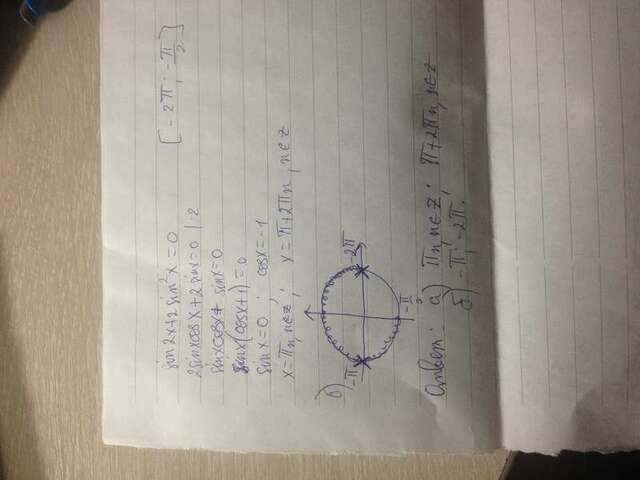 sin2x+2sin²x=0 [-2π; -π/2]
2sinxcosx+2sinx=0 |:2
sinxcosx+sinx=0
sinx(cosx+1)=0
sinx=0; cosx=-1
x=πn, n∈Z; x=π+2πn, n∈Z
б)
-π -2π
-π/2
Ответ: а) πn, n∈Z; π+2πn, n∈Z
б) -π; -2π.